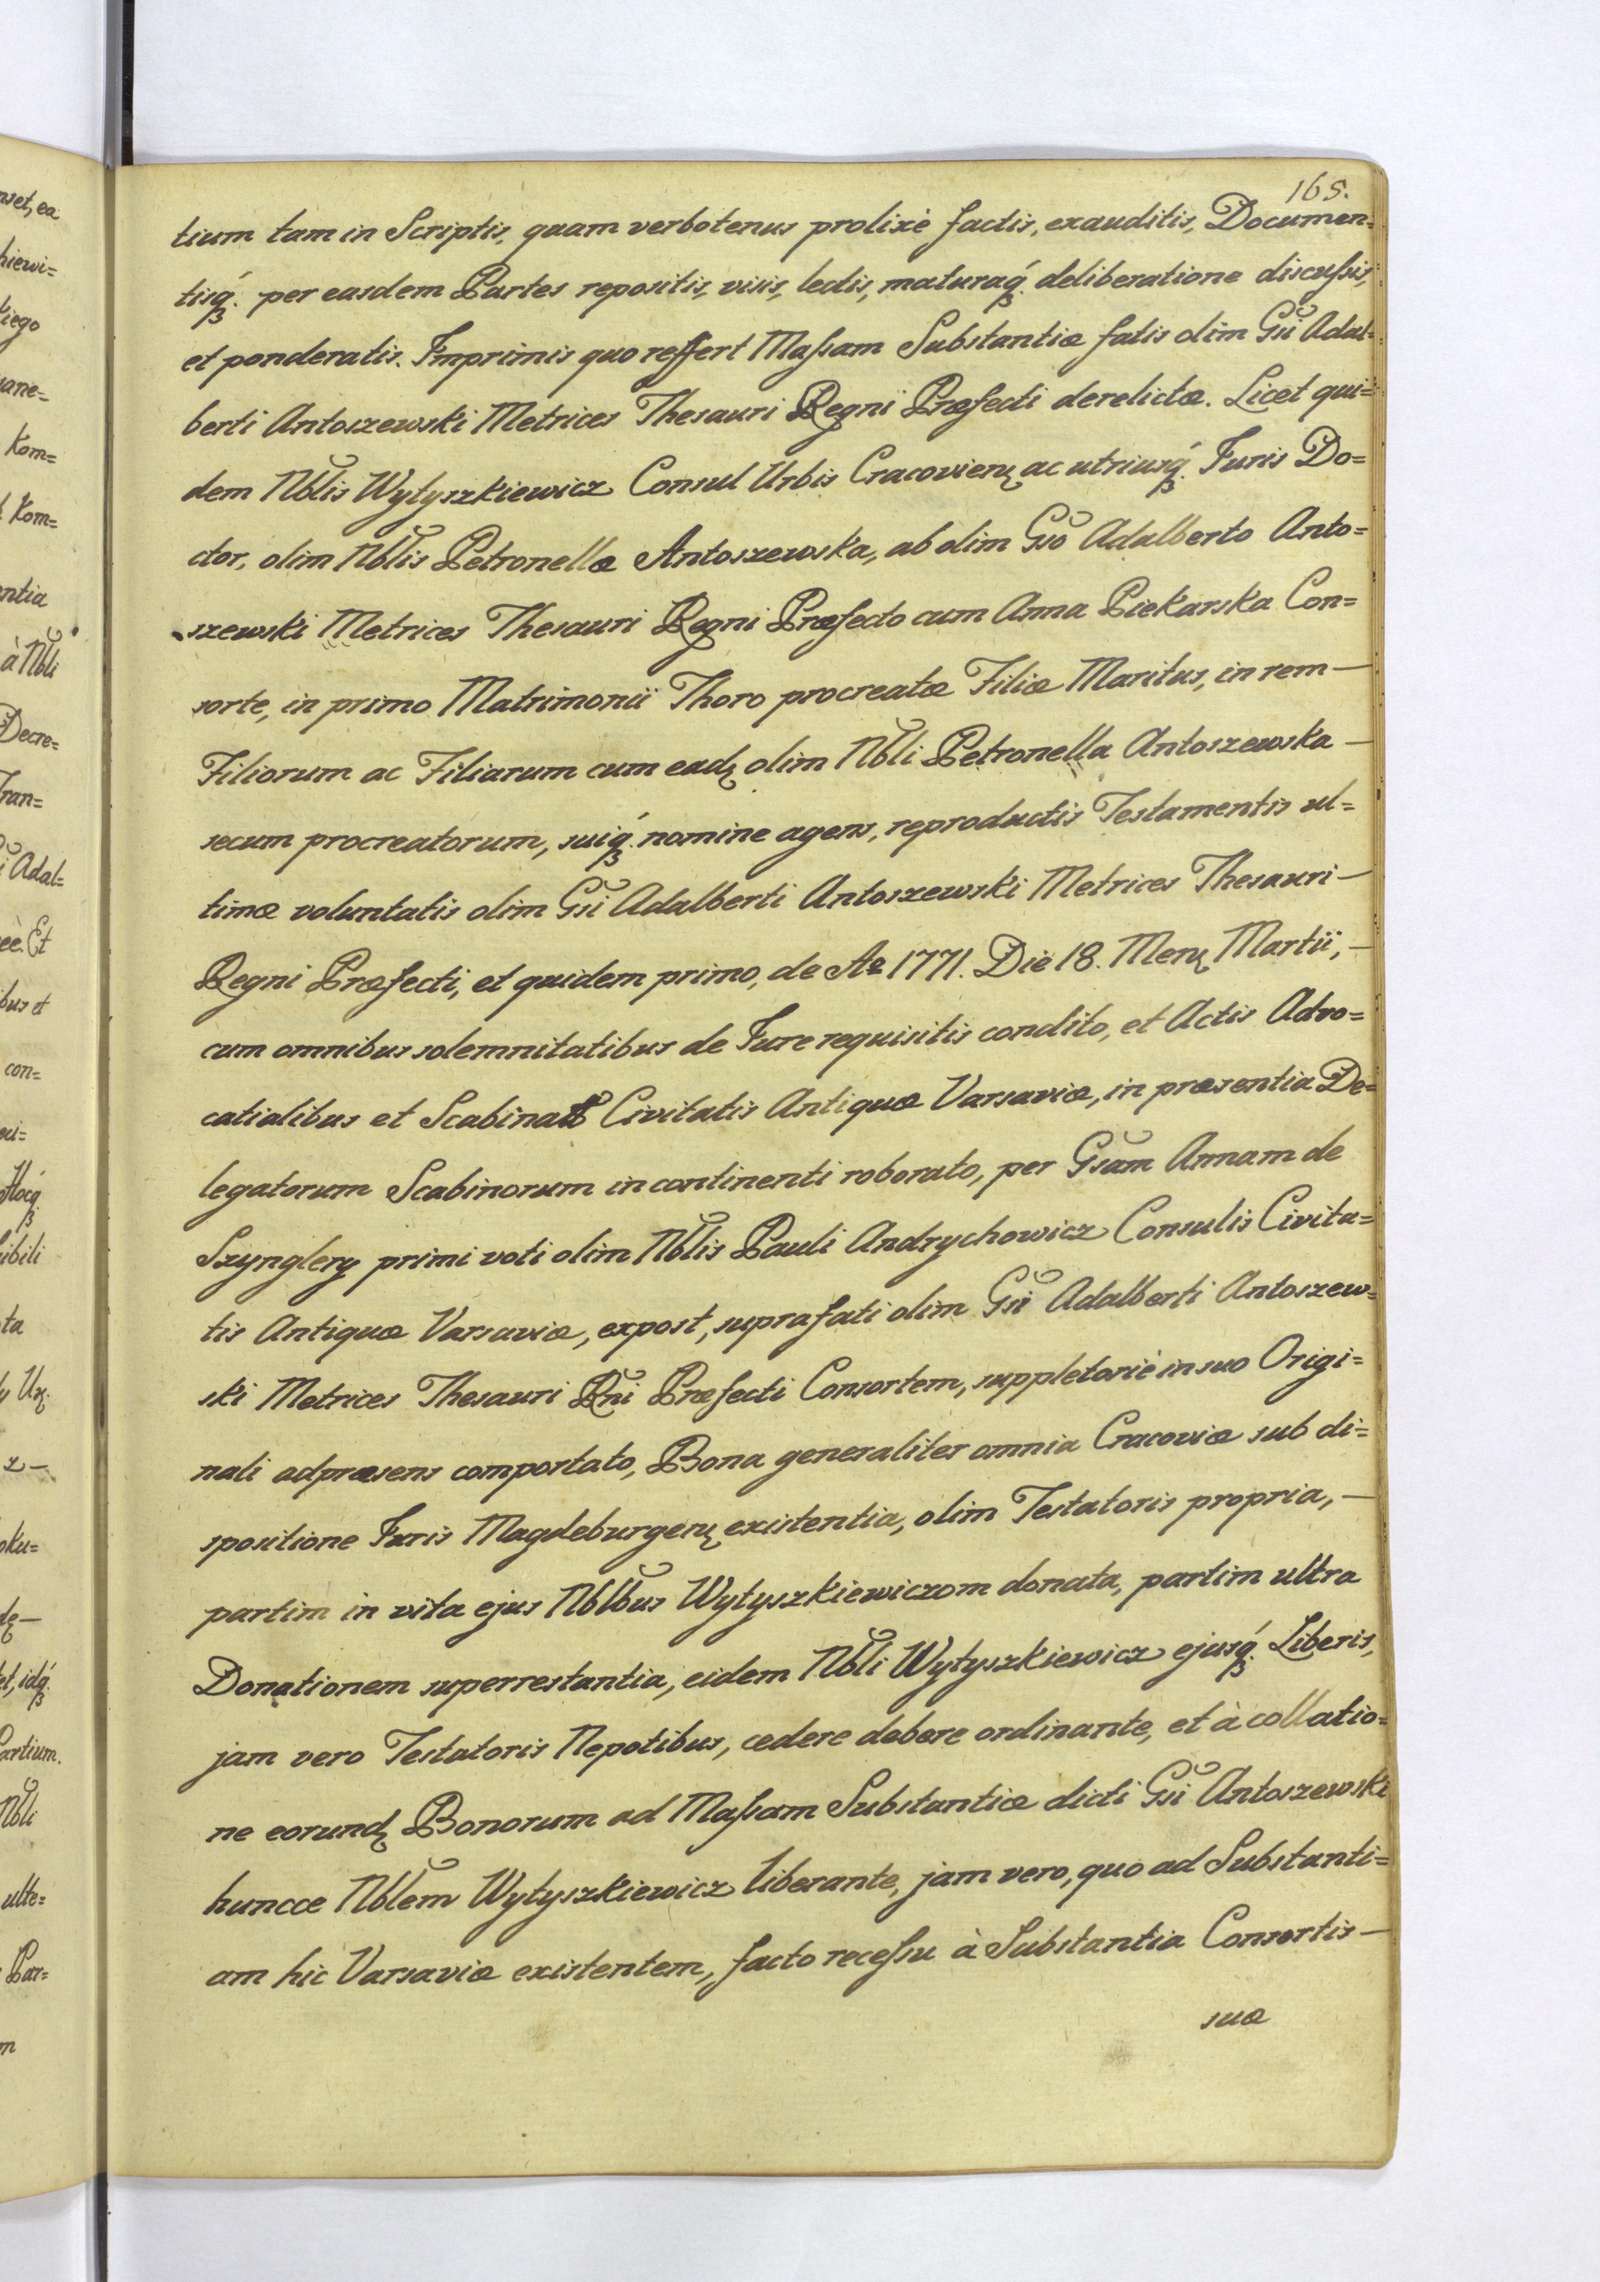 165.
tium tam in Scriptis, quam verbotenus prolixè factis, exauditis, Documen=
tisq́ꝫ. per easdem Partes repositis, visis, lectis, maturaq́ꝫ. deliberatione discussis,
et ponderatis. Imprimis quo reffert Massam Substantiæ fatis olim Gsi Adal=
berti Antoszewski Metrices Thesauri Regni Præfecti derelictæ. Licet qui=
dem Nblis Wytyszkiewicz Consul Urbis Cracovien̨ ac utriusq́ꝫ. Juris Do=
ctor, olim Nblis Petronellæ Antoszewska, ab olim Gso Adalberto Anto=
szewski Metrices Thesauri Regni Præfecto cum Anna Piekarska Con=
sorte, in primo Matrimonii Thoro procreatæ Filiæ Maritus, in rem —
Filiorum ac Filiarum cum ead̨ olim Nbli Petronella Antoszewska —
secum procreatorum, suiq́ꝫ. nomine agens, reproductis Testamentis ul=
timæ voluntatis olim Gsi Adalberti Antoszewski Metrices Thesauri —
Regni Præfecti, et quidem primo, de Ao 1771. Die 18. Men̨ Martii, —
cum omnibus solemnitatibus de Jure requisitis condito, et Actis Advo=
catialibus et Scabinał Civitatis Antiquæ Varsaviæ, in præsentia De=
legatorum Scabinorum in continenti roborato, per Gsam Annam de
Szynglery primi voti olim Nblis Pauli Andrychowicz Consulis Civita=
tis Antiquæ Varsaviæ, expost, suprafati olim Gsi Adalberti Antoszew=
ski Metrices Thesauri Rni Præfecti Consortem, suppletoriè in suo Origi=
nali adpræsens comportato, Bona generaliter omnia Cracoviæ sub di=
spositione Juris Magdeburgen̨ existentia, olim Testatoris propria, —
partim in vita ejus Nblbus Wytyszkiewiczom donata, partim ultra
Donationem superrestantia, eidem Nbli Wytyszkiewicz ejusq́ꝫ. Liberis,
jam vero Testatoris Nepotibus, cedere debere ordinante, et à collatio=
ne eorund̨ Bonorum ad Massam Substantiæ dicti Gsi Antoszewski
huncce Nblem Wytyszkiewicz liberante, jam vero, quo ad Substanti=
am hic Varsaviæ existentem, facto recessu à Substantia Consortis —
suæ